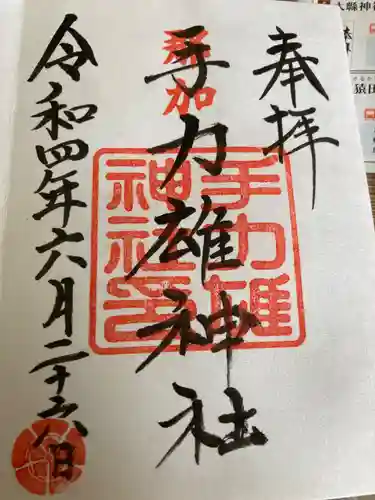 奉拝
各加
手力雄神社
手力雄
神社印
令和四年六月二十六日
大縣神社
猿田